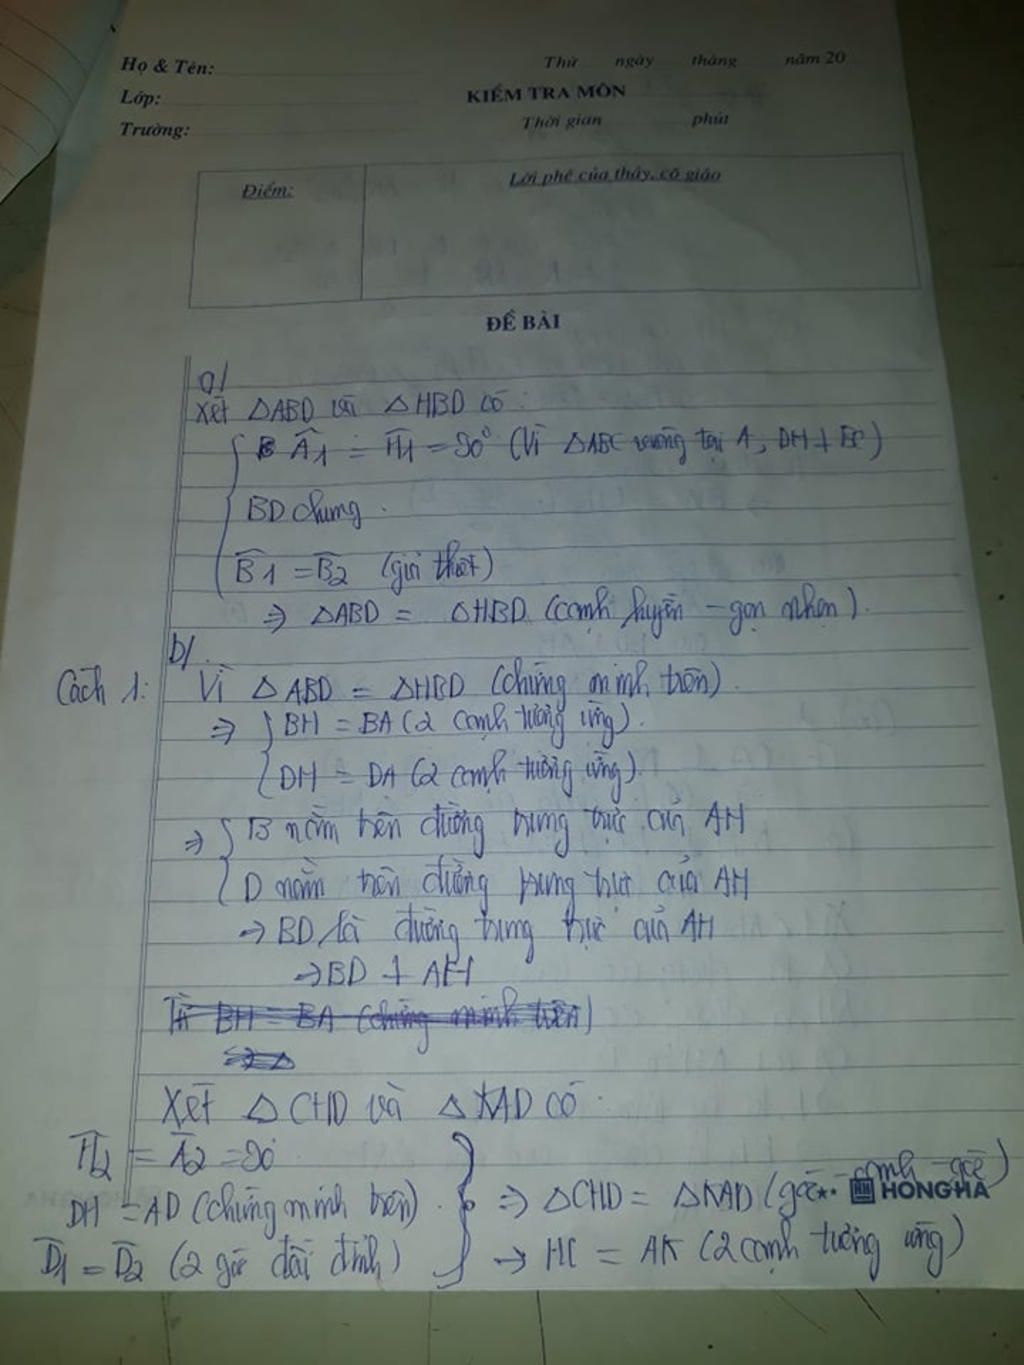 Họ & Tên:
Thứ ngày tháng năm 20
Lớp:
KIỂM TRA MÔN
Trường:
Thời gian phút
Điểm:
Lời phê của thầy, cô giáo
ĐỀ BÀI
a/
Xét △ABD và △HBD có:
Â1 = Ĥ1 = 90° (Vì △ABC vuông tại A, DH ⊥ BC)
BD chung.
B̂1 = B̂2 (giả thiết)
⇒ △ABD = △HBD (cạnh huyền - góc nhọn).
b/.
Cách 1: Vì △ABD = △HBD (chứng minh trên).
⇒ BH = BA (2 cạnh tương ứng).
DH = DA (2 cạnh tương ứng).
⇒ B nằm trên đường trung trực của AH
D nằm trên đường trung trực của AH
→ BD là đường trung trực của AH
→ BD ⊥ AH
Xét △CHD và △KAD có:
Ĥ2 = Â2 = 90°
DH = AD (chứng minh trên).
⇒ △CHD = △KAD (góc - cạnh - góc)
HONG HA
D̂1 = D̂2 (2 góc đối đỉnh)
→ HC = AK (2 cạnh tương ứng)